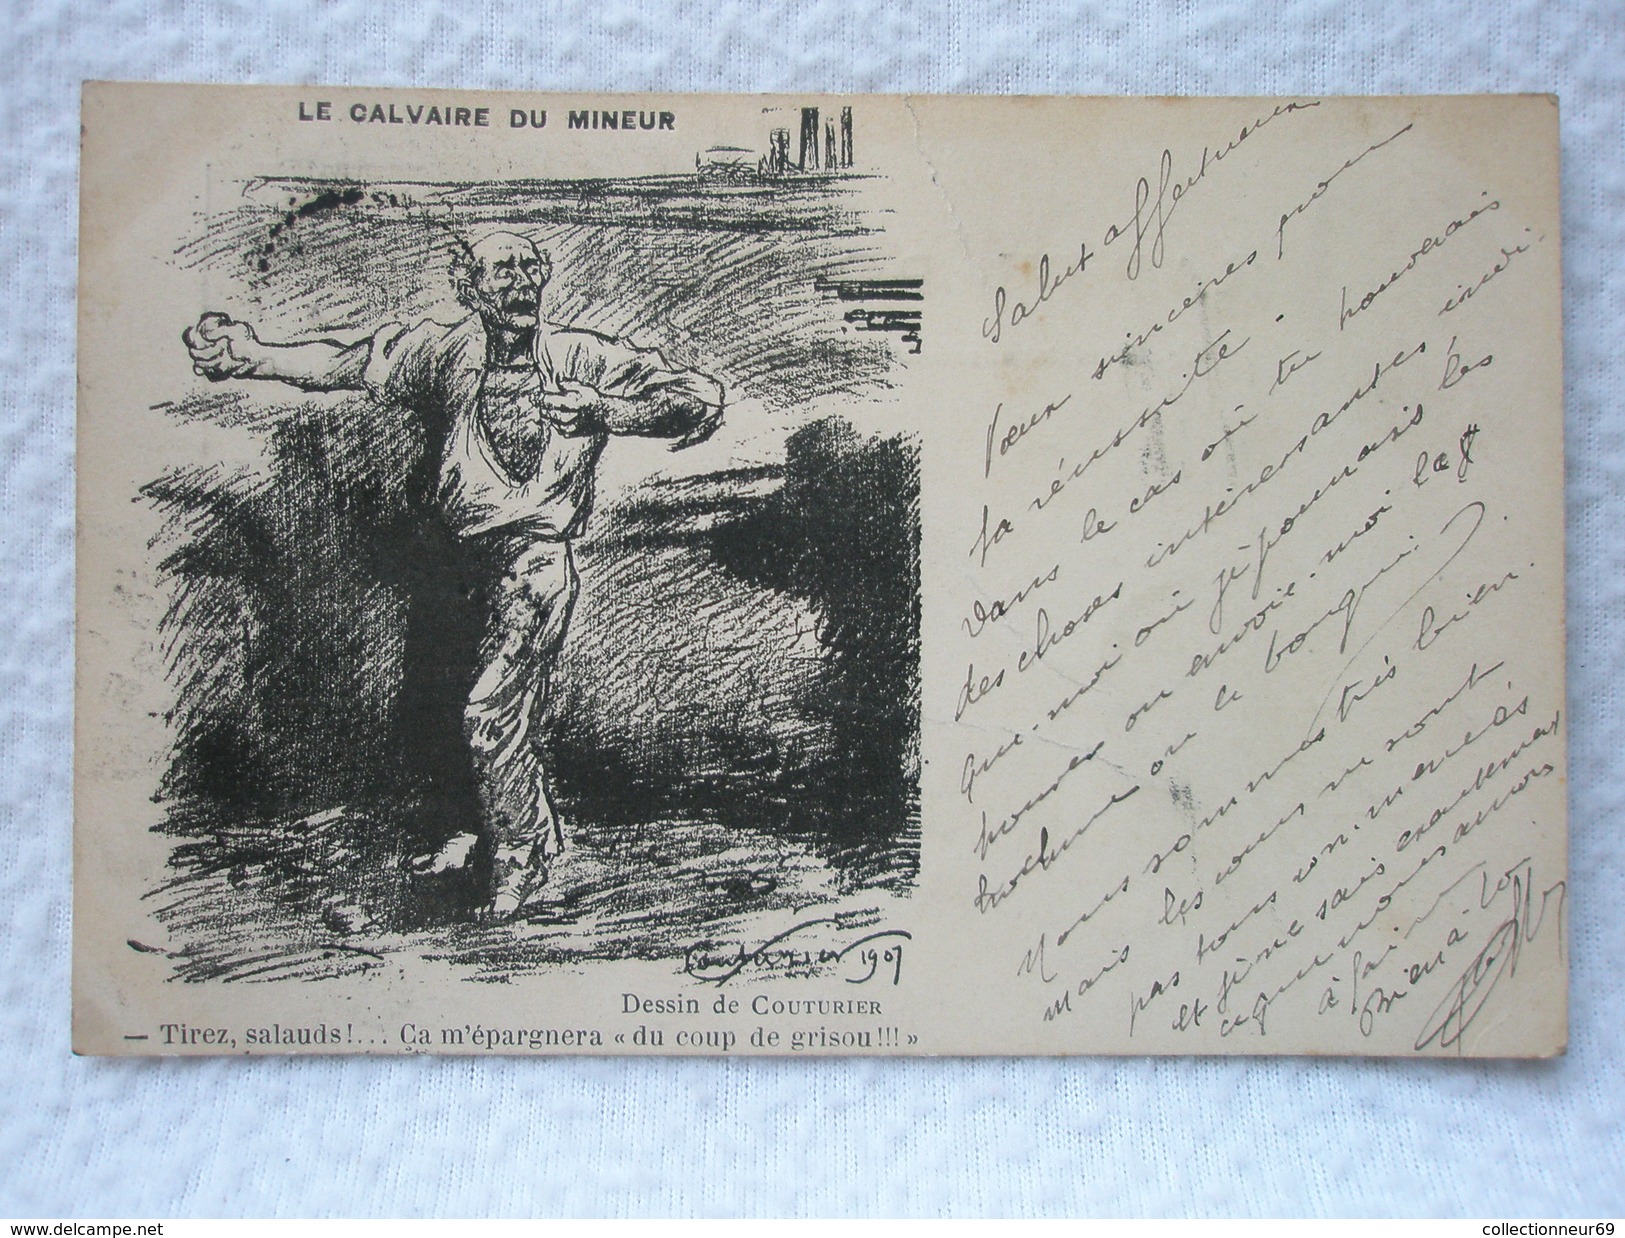 LE CALVAIRE DU MINEUR
Couturier 1907
Dessin de COUTURIER
— Tirez, salauds!... Ça m'épargnera « du coup de grisou!!! »
Salut affectueux
Vœux sincères pour
ta réussite.
Dans le cas où tu trouverais
des choses intéressantes, indi-
que-moi où je pourrais les
trouver ou envoie-moi la
ou ce bouquin.
Nous sommes très bien.
Mais les cours ne sont
pas tous commencés
et je ne sais exactement
ce que nous aurons
à faire
Bien à toi
collectionneur69